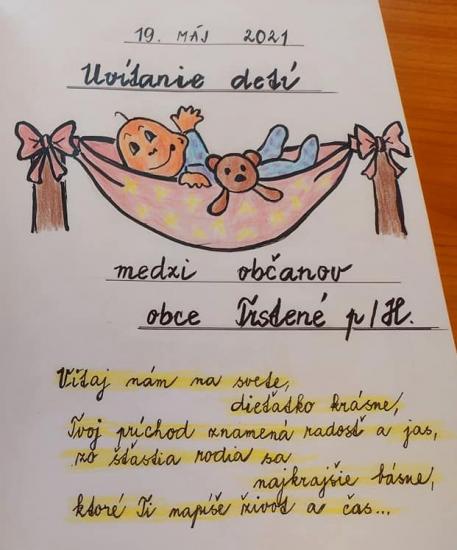 19. MÁJ 2021
Uvítanie detí
medzi občanov
obce Trstené p/H.
Vitaj nám na svete,
dieťatko krásne,
Tvoj príchod znamená radosť a jas,
zo šťastia rodia sa
najkrajšie básne,
ktoré Ti napíše život a čas...